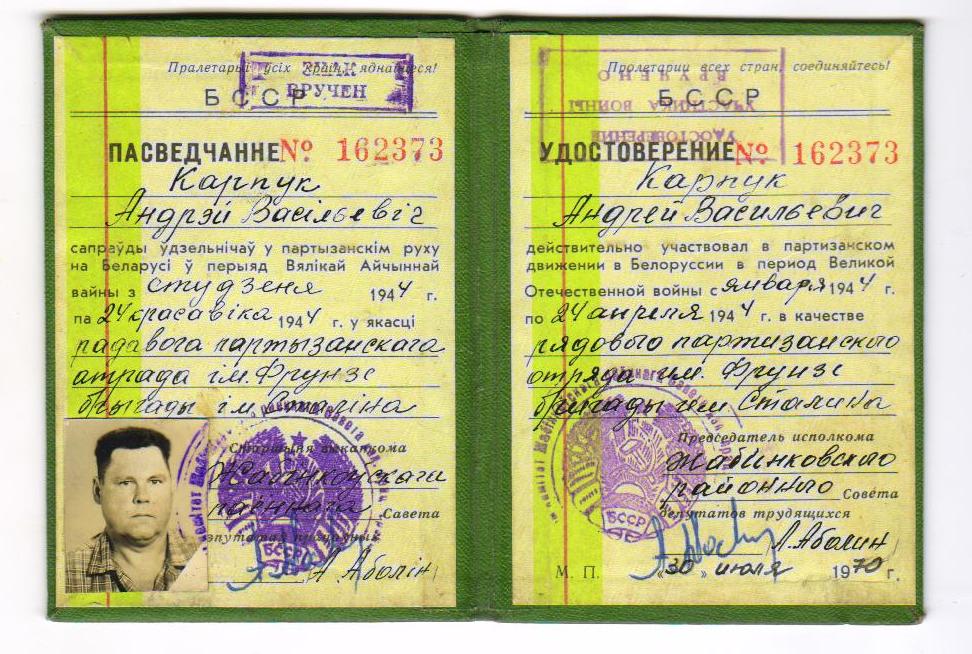 Пралетарыі ўсіх краін, яднайцеся!
ЗНАК
ВРУЧЕН
БССР
ПАСВЕДЧАННЕ № 162373
Карпук
Андрэй Васільевіч
сапраўды ўдзельнічаў у партызанскім руху
на Беларусі ў перыяд Вялікай Айчыннай
вайны з студзеня 1944 г.
па 24 красавіка 1944 г. у якасці
радавога партызанскага
атрада ім. Фрунзе
брыгады ім. Сталіна
Старшыня выканкома
Жабінкоўскага
раённага Савета
дэпутатаў працоўных
А. Аболін
БССР
Пролетарии всех стран, соединяйтесь!
УДОСТОВЕРЕНИЕ
УЧАСТНИКА ВОЙНЫ
ВРУЧЕНО
БССР
УДОСТОВЕРЕНИЕ № 162373
Карпук
Андрей Васильевич
действительно участвовал в партизанском
движении в Белоруссии в период Великой
Отечественной войны с января 1944 г.
по 24 апреля 1944 г. в качестве
рядового партизанского
отряда им. Фрунзе
бригады им. Сталина
Председатель исполкома
Жабинковского
районного Совета
депутатов трудящихся
А. Аболин
БССР
М. П. «30» июля 1970 г.